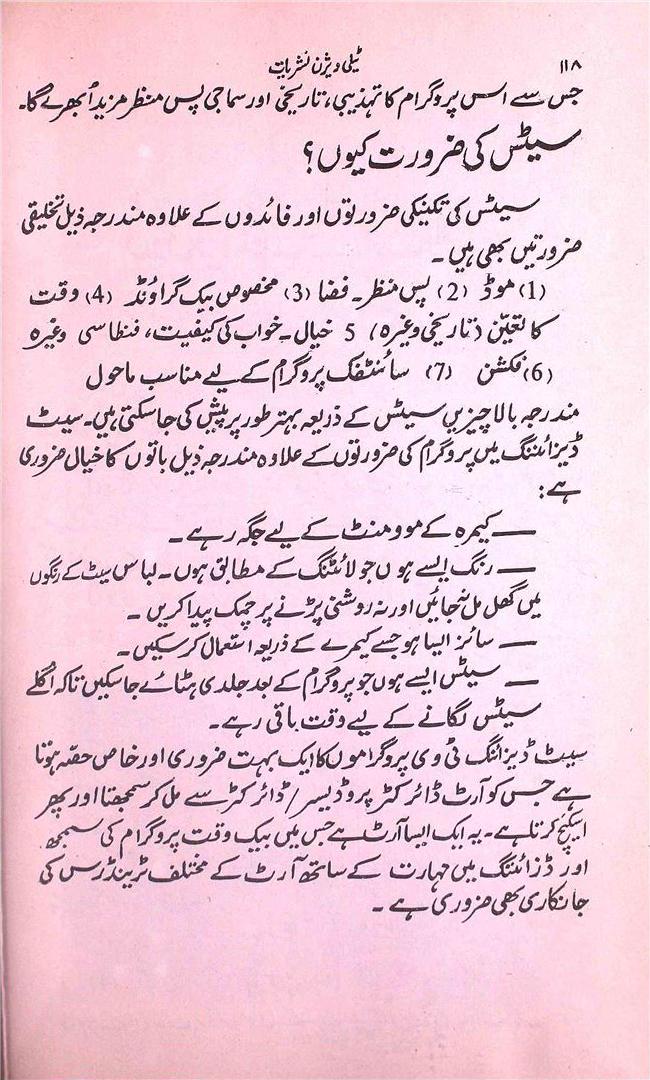 ۱۱۸
ٹیلی ویژن نشریات
جس سے اس پروگرام کا تہذیبی، تاریخی اور سماجی پس منظر مزید اُبھرے گا۔
سیٹس کی ضرورت کیوں؟
سیٹس کی تکنیکی ضرورتوں اور فائدوں کے علاوہ مندرجہ ذیل تخلیقی
ضرورتیں بھی ہیں۔
(1) موڈ (2) پس منظر۔ فضا (3) مخصوص بیک گراؤنڈ (4) وقت
کا تعیّن (تاریخی وغیرہ) 5 خیال۔ خواب کی کیفیت، فنطاسی وغیرہ
(6) فکشن (7) سائنٹفک پروگرام کے لیے مناسب ماحول
مندرجہ بالا چیزیں سیٹس کے ذریعہ بہتر طور پر پیش کی جا سکتی ہیں۔ سیٹ
ڈیزائننگ میں پروگرام کی ضرورتوں کے علاوہ مندرجہ ذیل باتوں کا خیال ضروری
ہے:
— کیمرہ کے موومنٹ کے لیے جگہ رہے۔
— رنگ ایسے ہوں جو لائٹنگ کے مطابق ہوں۔ لباس سیٹ کے رنگوں
میں گھل مل نہ جائیں اور نہ روشنی پڑنے پر چمک پیدا کریں۔
— سائز ایسا ہو جسے کیمرے کے ذریعہ استعمال کر سکیں۔
— سیٹس ایسے ہوں جو پروگرام کے بعد جلدی ہٹائے جا سکیں تاکہ اگلے
سیٹس لگانے کے لیے وقت باقی رہے۔
سیٹ ڈیزائنگ ٹی وی پروگراموں کا ایک بہت ضروری اور خاص حصّہ ہوتا
ہے جس کو آرٹ ڈائرکٹر پروڈیسر/ڈائرکٹر سے مل کر سمجھتا اور پھر
اسکیچ کرتا ہے۔ یہ ایک ایسا آرٹ ہے جس میں بیک وقت پروگرام کی سمجھ
اور ڈزائننگ میں مہارت کے ساتھ آرٹ کے مختلف ٹرینڈرس کی
جانکاری بھی ضروری ہے۔